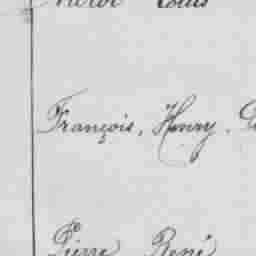 Louis
François, Henry,
Pierre René